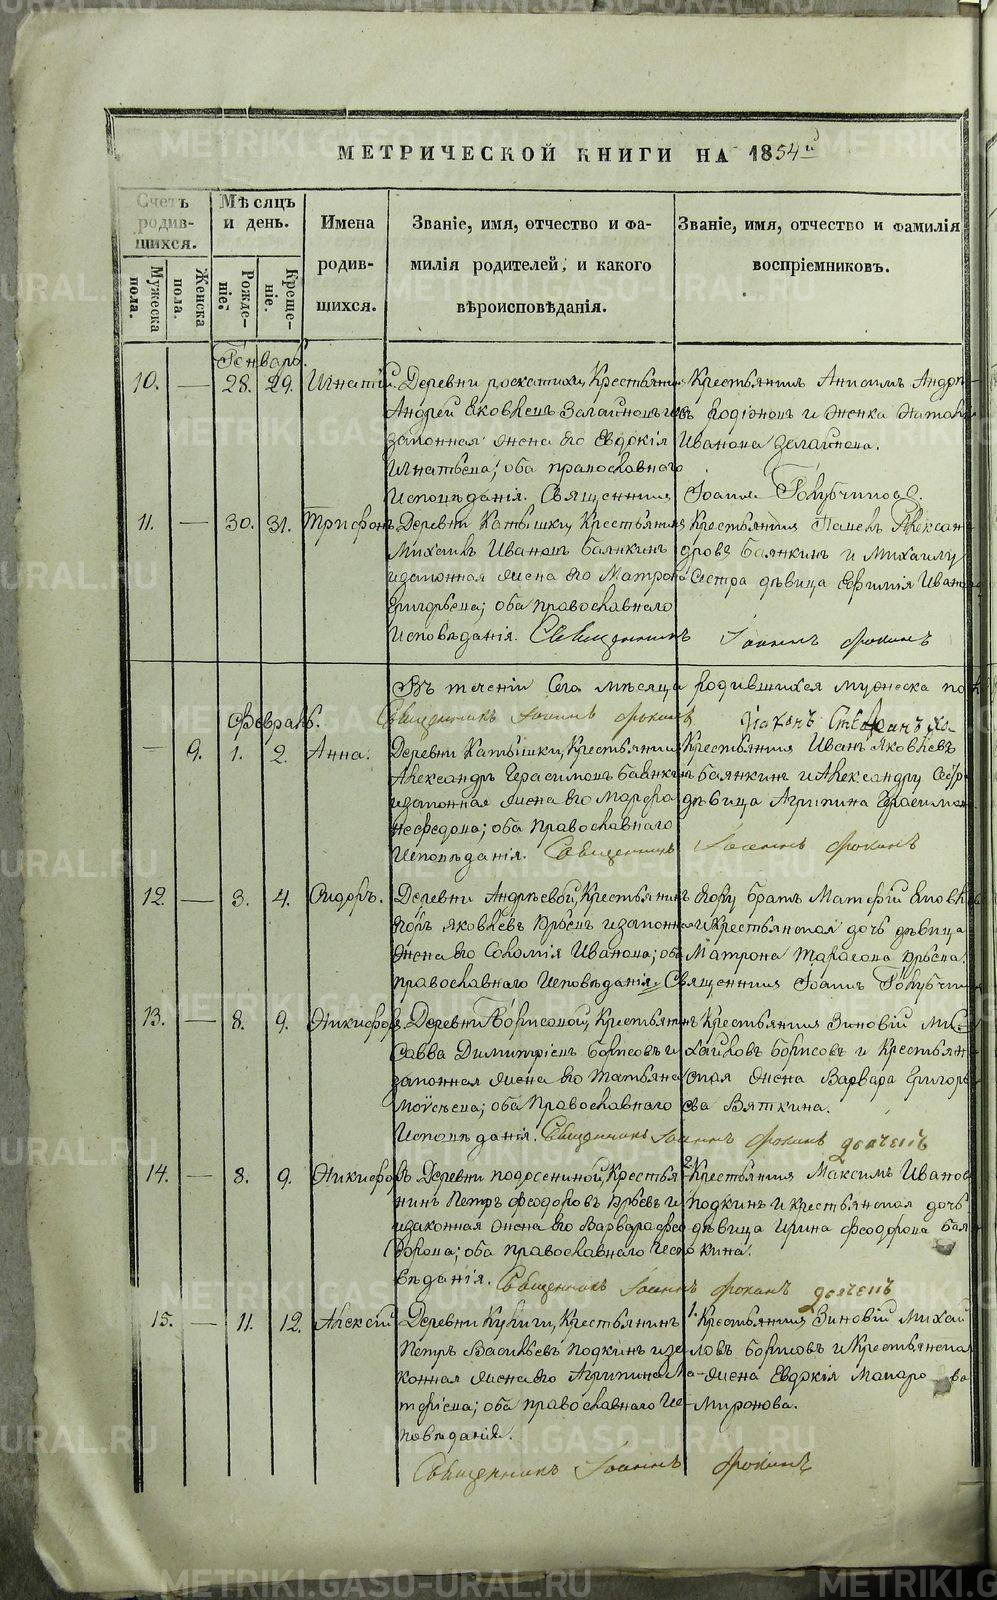 МЕТРИЧЕСКОЙ КНИГИ НА 1854й
Счетъ родившихся.
Мѣсяцъ и день.
Имена родившихся.
Званіе, имя, отчество и фамилія родителей, и какого вѣроисповѣданія.
Званіе, имя, отчество и фамилія воспріемниковъ.
Мужеска пола.
Женска пола.
Рожденіе.
Крещеніе.
Генварь.
10. — 28. 29. Игнатій. Деревни Крестьянинъ Крестьянинъ Анисимъ Андре
Андрей Яковлевъ и Родіоновъ и женка Наталья
законная жена его Евдокія Ивановна
Игнатьева; оба православнаго
Исповѣданія. Священникъ Іоаннъ Голубчиковъ.
11. — 30. 31. Трифонъ. Деревни Катышки, Крестьянинъ Крестьянинъ Павелъ Алексан
Михаилъ Ивановъ Баянкинъ дровъ Баянкинъ и Михаилу
и законная жена его Матрона Сестра дѣвица Ефимія Иванова
Григорьева; оба православнаго
Исповѣданія. Священникъ Іоаннъ Фокинъ
Въ теченіи Сего мѣсяца родившихся мужеска по
Священникъ Іоаннъ Фокинъ
Февраль.
— 9. 1. 2. Анна. Деревни Катышки, Крестьянинъ Крестьянинъ Иванъ Яковлевъ
Александръ Герасимовъ Баянкинъ Баянкинъ и Александру Сестра
и законная жена его Марфа дѣвица Агрипина Герасимова.
оба православнаго
Исповѣданія. Священникъ Іоаннъ Фокинъ
12. — 3. 4. Сидоръ. Деревни Андреевой, Крестьянинъ Егору братъ Матфій Яковлевъ
Егоръ Яковлевъ Юрьевъ и законная и Крестьянская дочь дѣвица
жена его Соломія Иванова; оба Матрона Тарасова Юрьева.
православнаго Исповѣданія. Священникъ Іоаннъ Голубчиковъ
13. — 8. 9. Никифоръ. Деревни Борисовой, Крестьянинъ Крестьянинъ Зиновій Ми
Савва Димитріевъ Борисовъ и хайловъ Борисовъ и Крестьян
законная жена его Татьяна ская жена Варвара Григорь
Моѵсѣева; оба Православнаго ева Вяткина.
Исповѣданія. Священникъ Іоаннъ Фокинъ
14. — 8. 9. Никифоръ Деревни Крестья 2. Крестьянинъ Максимъ Иванов
нинъ Петръ Феодоровъ Юрьевъ и Подкинъ и Крестьянская дочь
и законная жена его Варвара Фео дѣвица Ирина Феодорова Бая
дорова; оба православнаго Испо кина.
вѣданія. Священникъ Іоаннъ Фокинъ
15. — 11. 12. Алексій Деревни Кулиги, Крестьянинъ 1. Крестьянинъ Зиновій Михай
Петръ Васильевъ Подкинъ и за ловъ Борисовъ и Крестьянская
конная жена его Агрипина Ма жена Евдокія Макаро ва
тфіева; оба православнаго Ис Миронова.
повѣданія.
Священникъ Іоаннъ Фокинъ
METRIKI.GASO-URAL.RU